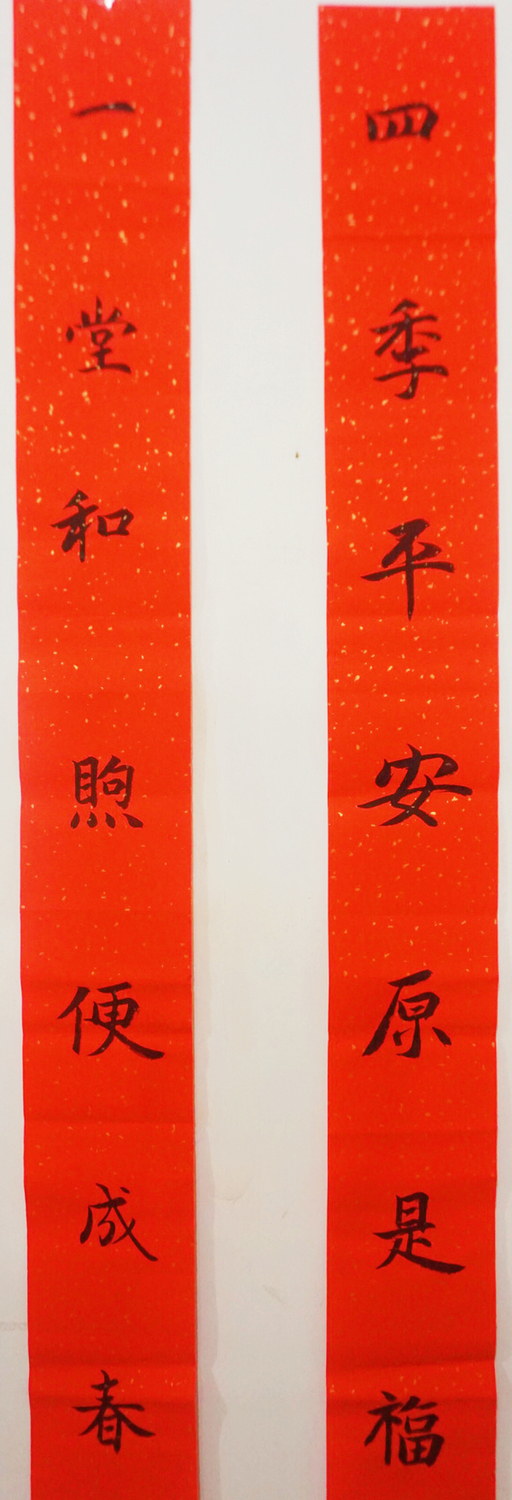 四季平安原是福
一堂和煦便成春